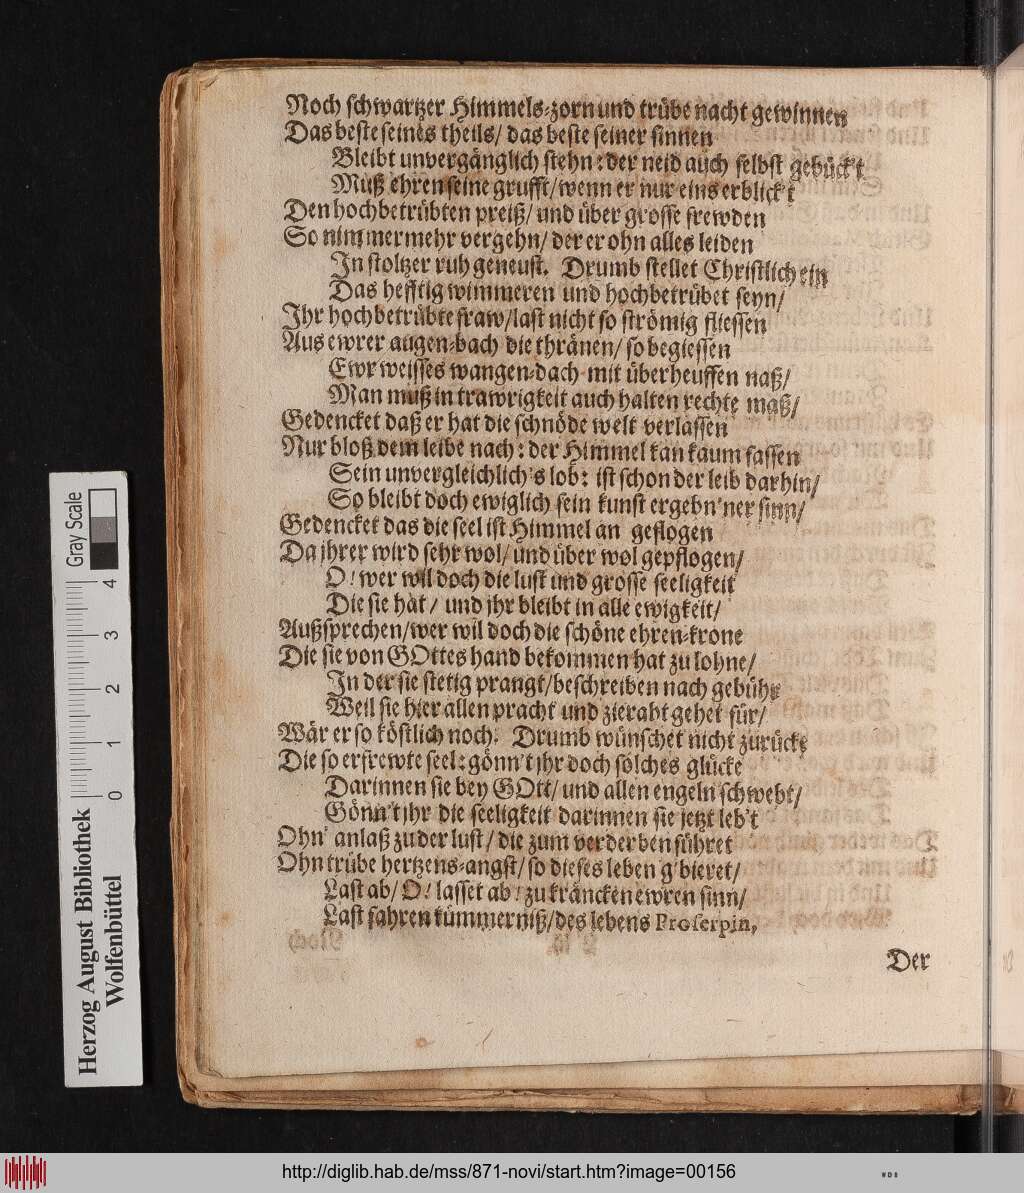 Noch schwartzer Himmels-zorn und trübe nacht gewinnen
Das beste seines theils/ das beste seiner sinnen
Bleibt unvergänglich stehn: der neid auch selbst gebückt
Muß ehren seine grufft/ wenn er nur eins erblickt
Den hochbetrübten preiß/ und über grosse frewden
So nimmermehr vergehn/ der er ohn alles leiden
In stoltzer ruh geneust. Drumb stellet Christlich ein
Das hefftig wimmeren und hochbetrübet seyn/
Ihr hochbetrübte fraw/ last nicht so strömig fliessen
Aus ewrer augen-bach die thränen/ so begiessen
Ewr weisses wangen-dach mit überheuffen naß/
Man muß in trawrigkeit auch halten rechte maß/
Gedencket daß er hat die schnöde welt verlassen
Nur bloß dem leibe nach: der Himmel kan kaum fassen
Sein unvergleichlich's lob: ist schon der leib darhin/
So bleibt doch ewiglich sein kunst ergebn'ner sinn/
Gedencket das die seel ist Himmel an geflogen
Da jhrer wird sehr wol/ und über wol gepflogen/
O! wer wil doch die lust und grosse seeligkeit
Die sie hat/ und jhr bleibt in alle ewigkeit/
Außsprechen/ wer wil doch die schöne ehren-krone
Die sie von GOttes hand bekommen hat zu lohne/
In der sie stetig prangt/ beschreiben nach gebühr
Weil sie hier allen pracht und zieraht gehet für/
Wär er so köstlich noch. Drumb wünschet nicht zurücke
Die so erfrewte seel: gönn't jhr doch solches glücke
Darinnen sie bey GOtt/ und allen engeln schwebt/
Gönn't jhr die seeligkeit darinnen sie jetzt leb't
Ohn' anlaß zu der lust/ die zum verderben führet
Ohn trübe hertzens-angst/ so dieses leben g'bieret/
Last ab/ O! lasset ab! zu kräncken ewren sinn/
Last fahren kümmerniß/ des lebens Proserpin,
Der
Herzog August Bibliothek
Wolfenbüttel
0 1 2 3 4
Gray Scale
http://diglib.hab.de/mss/871-novi/start.htm?image=00156
WDB